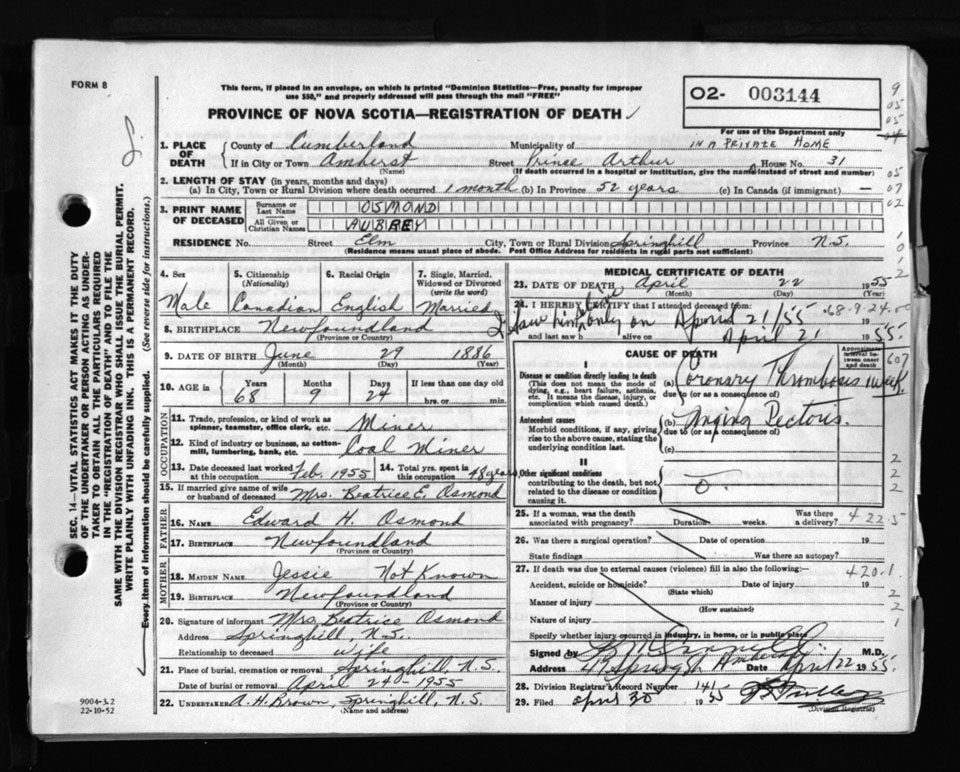 FORM 8
This form, if placed in an envelope, on which is printed "Dominion Statistics—Free, penalty for improper
use $50," and properly addressed will pass through the mail "FREE"
PROVINCE OF NOVA SCOTIA—REGISTRATION OF DEATH
O2- 003144
For use of the Department only
1. PLACE OF DEATH
County of Cumberland Municipality of IN A PRIVATE HOME
If in City or Town Amherst Street Prince Arthur House No. 31
(Name) (If death occurred in a hospital or institution, give the name instead of street and number)
2. LENGTH OF STAY (in years, months and days)
(a) In City, Town or Rural Division where death occurred 1 month (b) In Province 52 years (c) In Canada (if immigrant) —
3. PRINT NAME OF DECEASED
Surname or Last Name OSMOND
All Given or Christian Names AUBREY
RESIDENCE No. Street Elm City, Town or Rural Division Springhill Province N.S.
(Residence means usual place of abode. Post Office Address for residents in rural parts not sufficient)
4. Sex
Male
5. Citizenship (Nationality)
Canadian
6. Racial Origin
English
7. Single, Married, Widowed or Divorced (write the word)
Married
8. BIRTHPLACE Newfoundland
(Province or Country)
9. DATE OF BIRTH June 29 1886
(Month) (Day) (Year)
10. AGE in Years Months Days If less than one day old
68 9 24 hrs. or min.
OCCUPATION
11. Trade, profession, or kind of work as spinner, teamster, office clerk, etc. Miner
12. Kind of industry or business, as cotton-mill, lumbering, bank, etc. Coal Miner
13. Date deceased last worked at this occupation Feb. 1955
14. Total yrs. spent in this occupation 48 years
15. If married give name of wife or husband of deceased Mrs. Beatrice E. Osmond
FATHER
16. NAME Edward H. Osmond
17. BIRTHPLACE Newfoundland
(Province or Country)
MOTHER
18. MAIDEN NAME Jessie Not Known
19. BIRTHPLACE Newfoundland
(Province or Country)
20. Signature of informant Mrs. Beatrice Osmond
Address Springhill, N.S.
Relationship to deceased wife
21. Place of burial, cremation or removal Springhill N.S.
Date of burial or removal April 24 - 1955
22. UNDERTAKER A. H. Brown, Springhill, N.S.
(Name and address)
MEDICAL CERTIFICATE OF DEATH
23. DATE OF DEATH April 22 1955
(Month) (Day) (Year)
24. I HEREBY CERTIFY that I attended deceased from:
I saw him only on April 21/55 19
and last saw h alive on April 21 1955
68-9-24
CAUSE OF DEATH
Approximate interval between onset and death
I
Disease or condition directly leading to death
(This does not mean the mode of dying, e.g., heart failure, asthenia, etc. It means the disease, injury, or complication which caused death.)
(a) Coronary Thrombosis 1 week
due to (or as a consequence of)
Antecedent causes
Morbid conditions, if any, giving rise to the above cause, stating the underlying condition last.
(b) Angina Pectoris.
due to (or as a consequence of)
(c)
II
Other significant conditions
contributing to the death, but not related to the disease or condition causing it
O.
607
25. If a woman, was the death associated with pregnancy? Duration weeks. Was there a delivery?
422.5
26. Was there a surgical operation? Date of operation 19
State findings Was there an autopsy?
27. If death was due to external causes (violence) fill in also the following:—
420.1
Accident, suicide or homicide? Date of injury 19
(State which)
Manner of injury
(How sustained)
Nature of injury
Specify whether injury occurred in industry, in home, or in public place
Signed by M.D.
Address Amherst Date April 22 1955.
28. Division Registrar's Record Number 141/55
29. Filed April 30 1955
(Division Registrar)
SEC. 14—VITAL STATISTICS ACT MAKES IT THE DUTY
OF THE UNDERTAKER OR PERSON ACTING AS UNDER-
TAKER TO OBTAIN ALL THE PARTICULARS REQUIRED
IN THE "REGISTRATION OF DEATH" AND TO FILE THE
SAME WITH THE DIVISION REGISTRAR WHO SHALL ISSUE THE BURIAL PERMIT.
WRITE PLAINLY WITH UNFADING INK. THIS IS A PERMANENT RECORD.
Every item of information should be carefully supplied. (See reverse side for instructions.)
9004-3.2
22-10-52